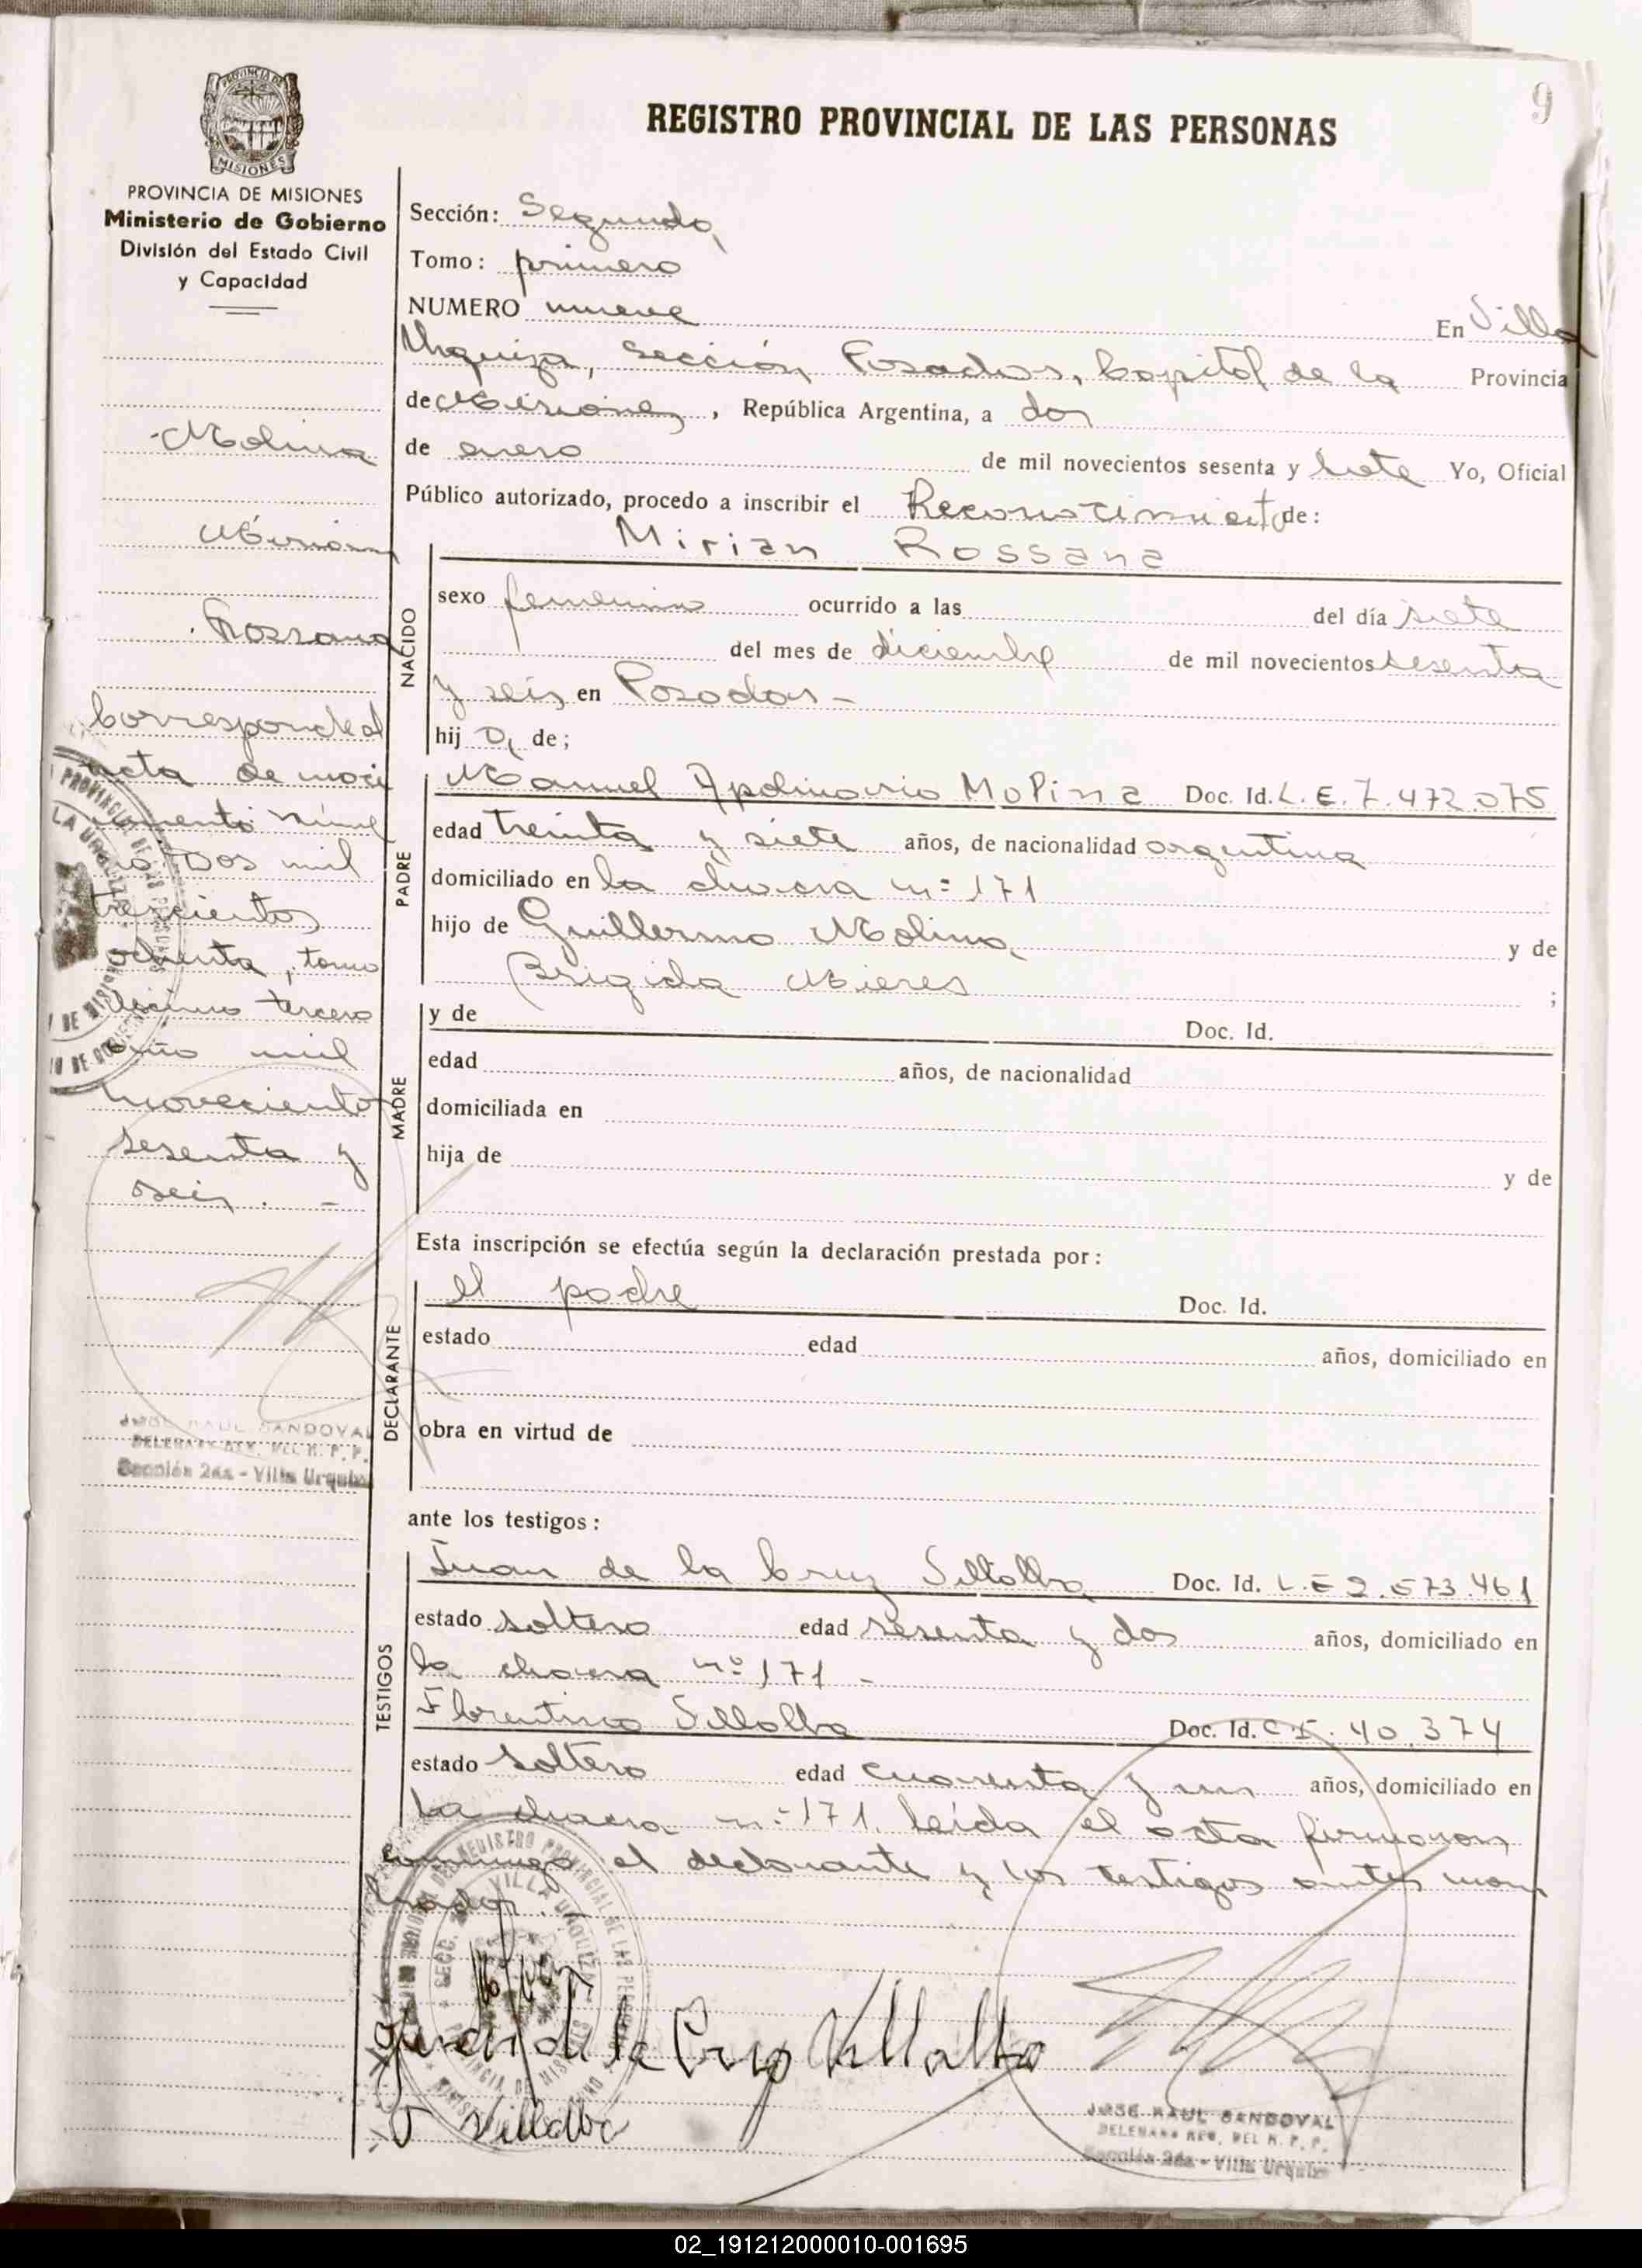 9
REGISTRO PROVINCIAL DE LAS PERSONAS
PROVINCIA DE MISIONES
PROVINCIA DE MISIONES
Ministerio de Gobierno
División del Estado Civil
y Capacidad
Molina
Mirian
Rossana
Corresponde al
acta de naci
miento núme
ro Dos mil
trescientos
ochenta, tomo
décimo tercero
año mil
novecientos
sesenta y
seis. -
JOSE RAUL SANDOVAL
Sección 2da - Villa Urquiza
Sección: Segunda
Tomo: primero
NUMERO nueve En Villa
Urquiza, Sección Posadas, Capital de la Provincia
de Misiones, República Argentina, a dos
de enero de mil novecientos sesenta y siete Yo, Oficial
Público autorizado, procedo a inscribir el Reconocimiento de:
Mirian Rossana
NACIDO
sexo femenino ocurrido a las del día siete
del mes de diciembre de mil novecientos sesenta
y seis en Posadas -
hij a de;
PADRE
Manuel Apolinario Molina Doc. Id. L.E. 7.472.075
edad treinta y siete años, de nacionalidad argentina
domiciliado en la chacra nº 171
hijo de Guillermo Molina y de
Brigida Mieres ;
MADRE
y de Doc. Id.
edad años, de nacionalidad
domiciliada en
hija de y de
Esta inscripción se efectúa según la declaración prestada por:
DECLARANTE
el padre Doc. Id.
estado edad años, domiciliado en
obra en virtud de
ante los testigos:
TESTIGOS
Juan de la Cruz Villalba Doc. Id. L.E 2.573.461
estado soltero edad sesenta y dos años, domiciliado en
la chacra nº 171 -
Florentino Villalba Doc. Id. C.I. 40.374
estado soltero edad cuarenta y un años, domiciliado en
la chacra nº 171. Leída el acta firmaron
conmigo el declarante y los testigos antes nom
brados.
Juan de la Cruz Villalba
F Villalba
JOSE RAUL SANDOVAL
Sección 2da - Villa Urquiza
02_191212000010-001695